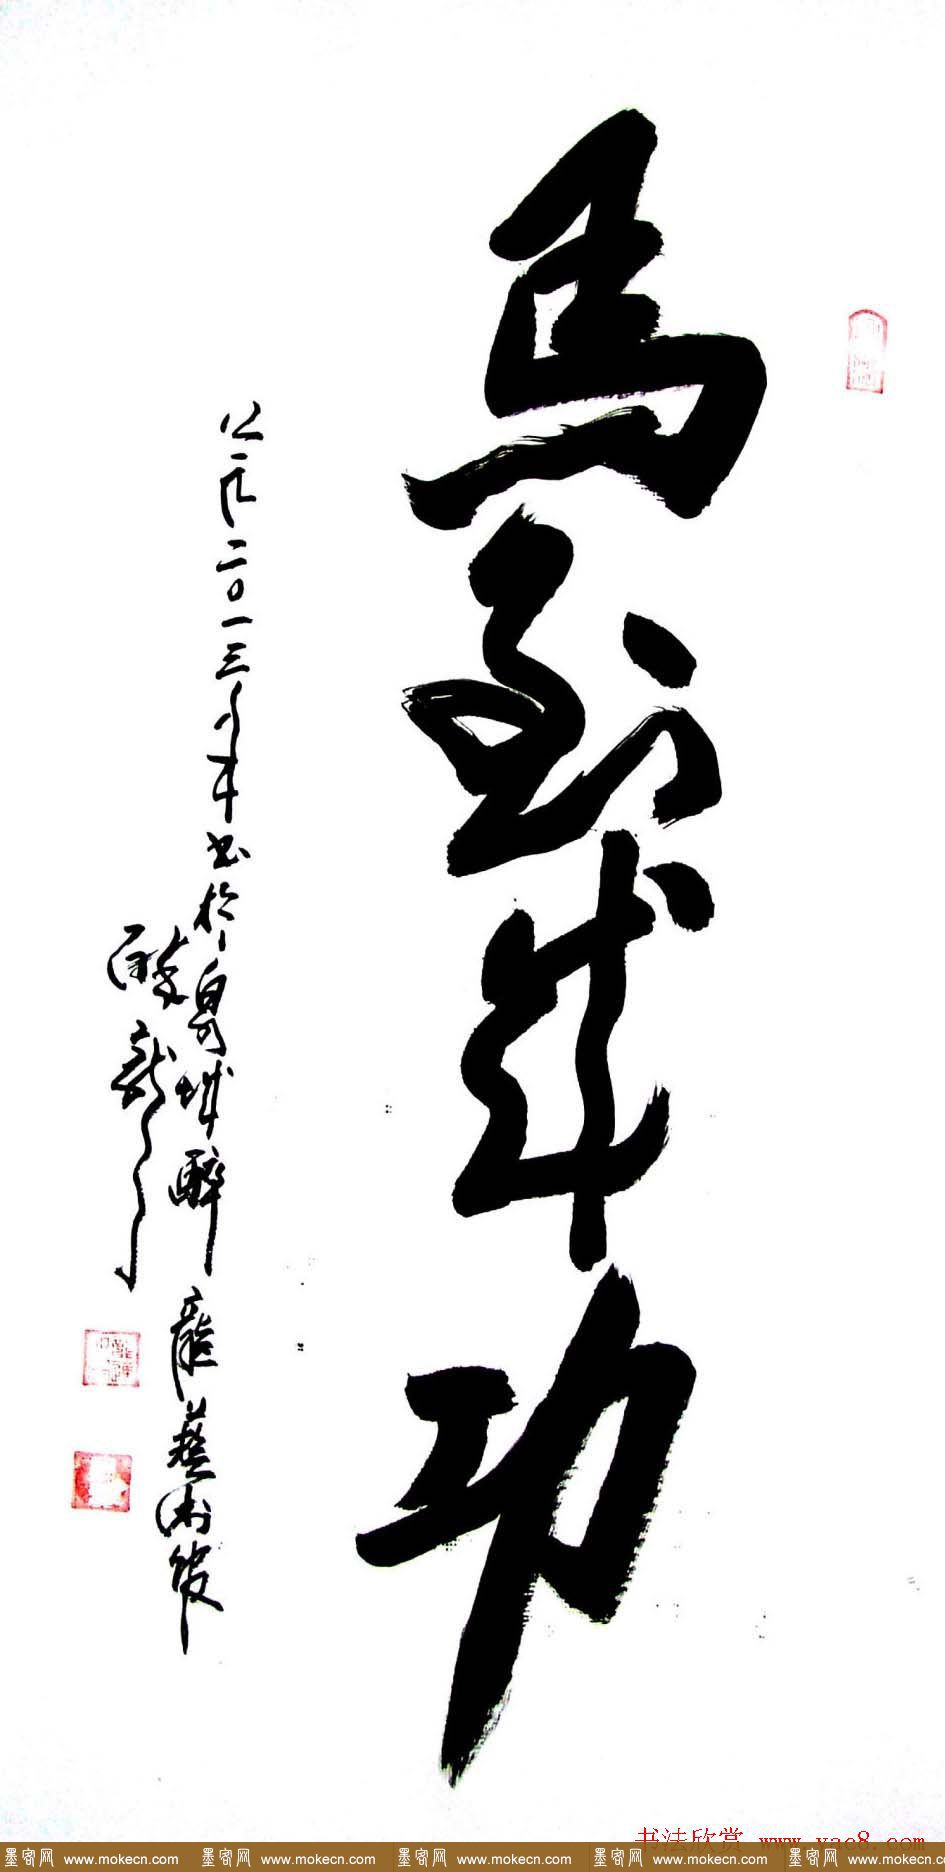 馬到成功
公元二〇一三年書於鳳城醉龍藝術館
醉龍
书法欣赏 www.yac8.com
墨客网 www.mokecn.com 墨客网 www.mokecn.com 墨客网 www.mokecn.com 墨客网 www.mokecn.com 墨客网 www.mokecn.com